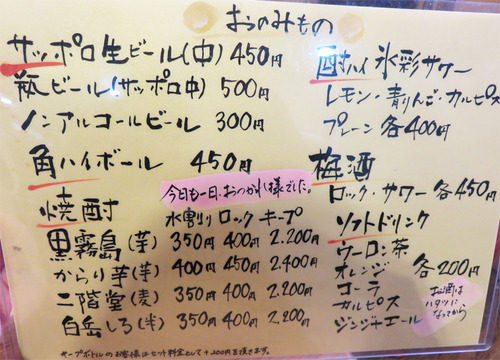 おのみもの
サッポロ生ビール(中) 450円
瓶ビール(サッポロ中) 500円
ノンアルコールビール 300円
角ハイボール 450円
今日も一日、おつかれ様でした。
焼酎 水割り ロック キープ
黒霧島(芋) 350円 400円 2.200円
からり芋(芋) 400円 450円 2.400円
二階堂(麦) 350円 400円 2.200円
白岳しろ(米) 350円 400円 2.200円
キープボトルのお客様はセット料金として+200円を頂きます。
酎ハイ 氷彩サワー
レモン・青りんご・カルピス
プレーン 各400円
梅酒
ロック・サワー 各450円
ソフトドリンク
ウーロン茶
オレンジ 各200円
コーラ
カルピス
ジンジャエール
お酒は
ハタチに
なってから